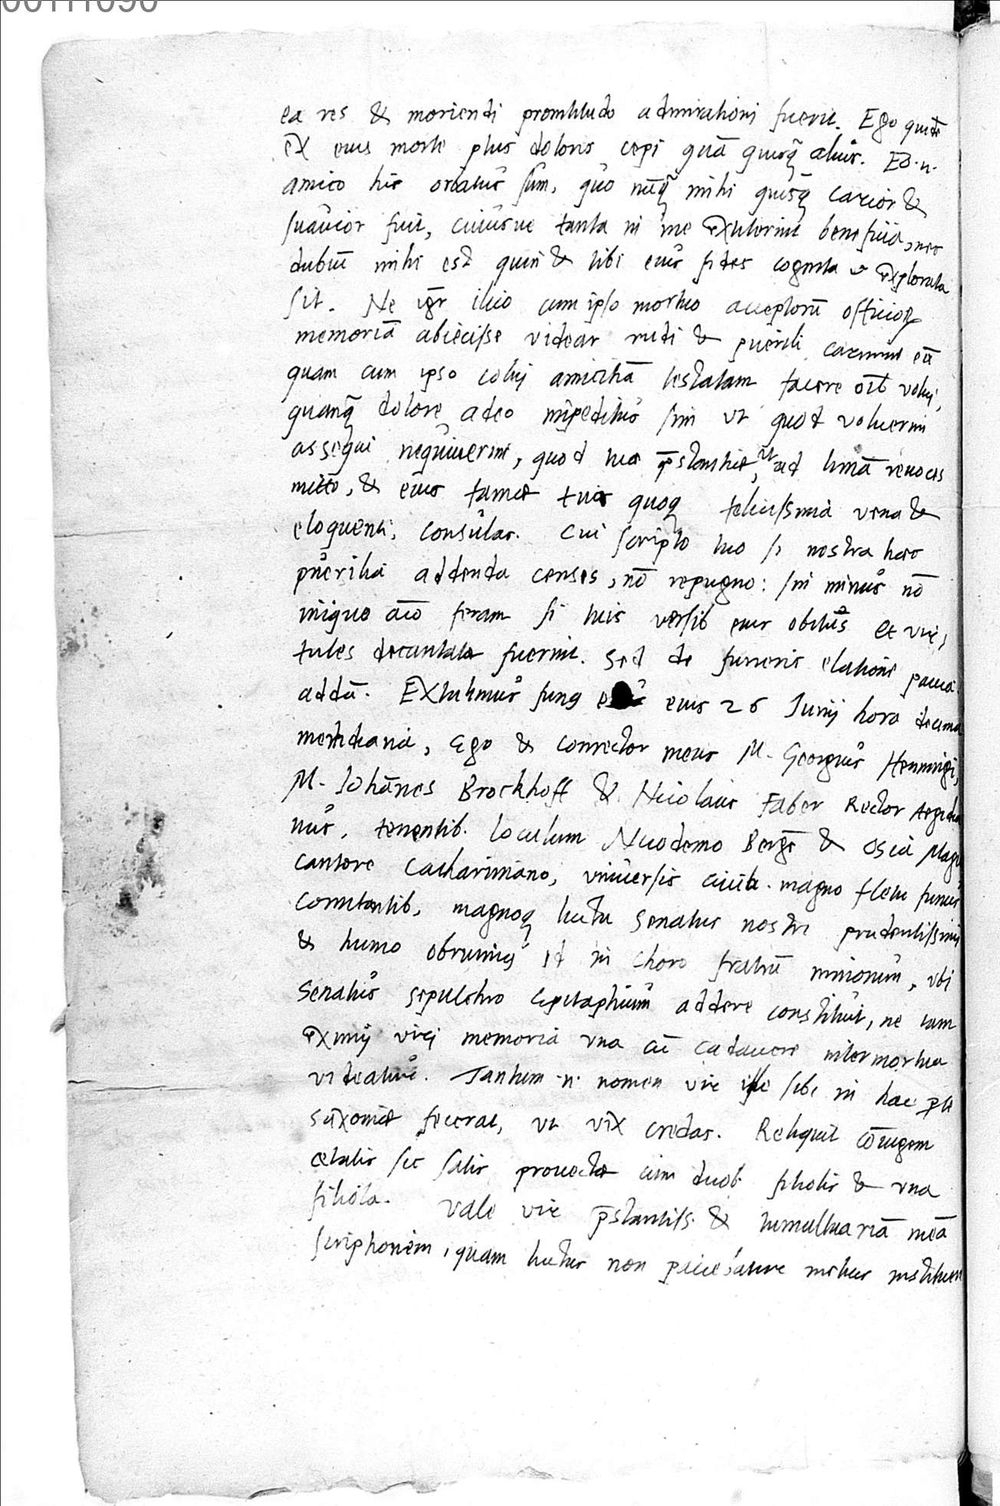 00111090
ea res & moriendi promtitudo admirationi fuerit. Ego quidē
ex eius morte plus doloris cepi quā quisq̃ alius. Eo .n.
amico hic orbatus sum, quo nūq̃ mihi quisq̃ carior &
suavior fuit, cuiusue tanta in me extiterint beneficia, nec
dubiū mihi est quin & tibi eius fides cognita & explorata
sit. Ne igr̄ ilico cum ipso mortuo acceptorū officioꝝ
memoriā abiecisse videar rudi & puerili carmine eā
quam cum ipso colui amicitiā testatam facere oīb volui,
quanq̃ dolore adeo impeditus sim ut quod voluerim
assequi nequiverim, quod tuæ p̄stantiæ, ut ad limā revoces
mitto, & eius famæ tua quoq felicissima vena &
eloquentia, consulas. Cui scripto tuo si nostra haec
puerilia addenda censes, nō repugno: sin minus nō
iniquo aīo feram si tuis versib eius obitus et vir,
tutes decantatæ fuerint. Sed de funeris elatione pauca
addā. Extulimus eius 26 Junij hora decima
meridiana, Ego & conrector meus M. Georgius Henningi,
M. Johānes Brockhoff & Nicolaus Faber Rector Aegidia
nus, tenentib. loculum Nicodemo Berge & Osia Mage
cantore Cathariniano, universis civib. magno fletu funus
comitantib, magnoq luctu senatus nostri prudentissimi
& humo obruimus id in choro fratrū minorum, ubi
Senatus sepulchro Epitaphium addere constituit, ne tam
eximij viri memoria una cū cadavere intermortua
videatur. Tantum .n. nomen vir ille sibi in hac p̄te
saxoniæ fecerat, ut vix credas. Reliquit cōiugem
ætatis sic satis provectæ cum duob filiolis & una
filiola. Vale vir p̄stantiss. & tumultuariā meā
scriptionem, quam luctus non